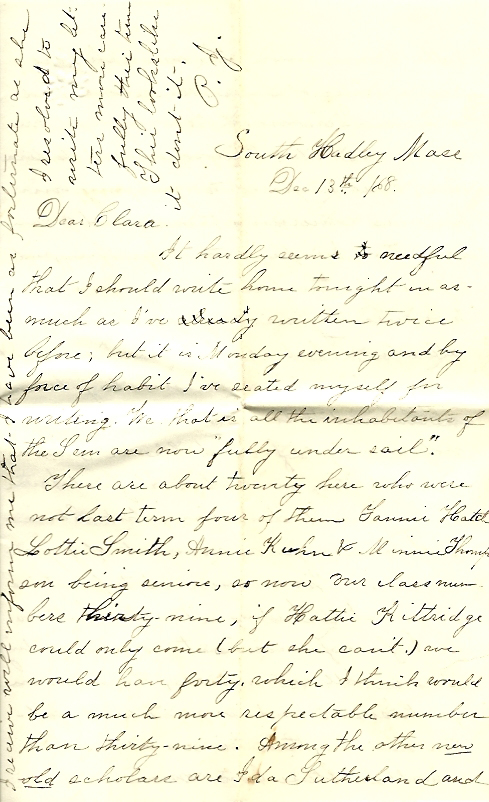 South Hadley Mass
Dec 13th /68.
Dear Clara.
It hardly seems needful
that I should write home tonight in as-
much as I've already written twice
before; but it is Monday evening and by
force of habit I've seated myself for
writing. We that is all the inhabitants of
the Sem are now "fully under sail".
There are about twenty here who were
not last term four of them Fannie Hatch
Lottie Smith, Annie Kuhn & Minnie Thomp
son being seniors, so now our class num-
bers thirty-nine, if Hattie Kittridge
could only come (but she can't.) we
would have forty. which I think would
be a much more respectable number
than thirty-nine. Among the other new
old scholars are Ida Sutherland and
I resolved to
write my let-
ters more care
fully this term
This looks like
it dont it.
P. J.
me that I have been as fortunate as she